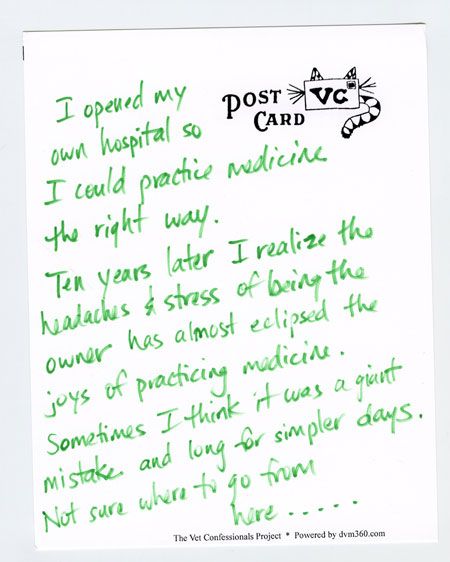 I opened my
own hospital so
I could practice medicine
the right way.
POST
CARD
VC
Ten years later I realize the
headaches & stress of being the
owner has almost eclipsed the
joys of practicing medicine.
Sometimes I think it was a giant
mistake and long for simpler days.
Not sure where to go from
here .....
The Vet Confessionals Project * Powered by dvm360.com